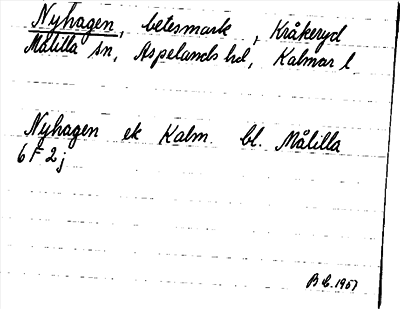 Nyhagen, betesmark, Kråkeryd
Målilla sn, Aspelands hd, Kalmar l
Nyhagen ek Kalm. bl. Målilla
6 F 2 j
1957